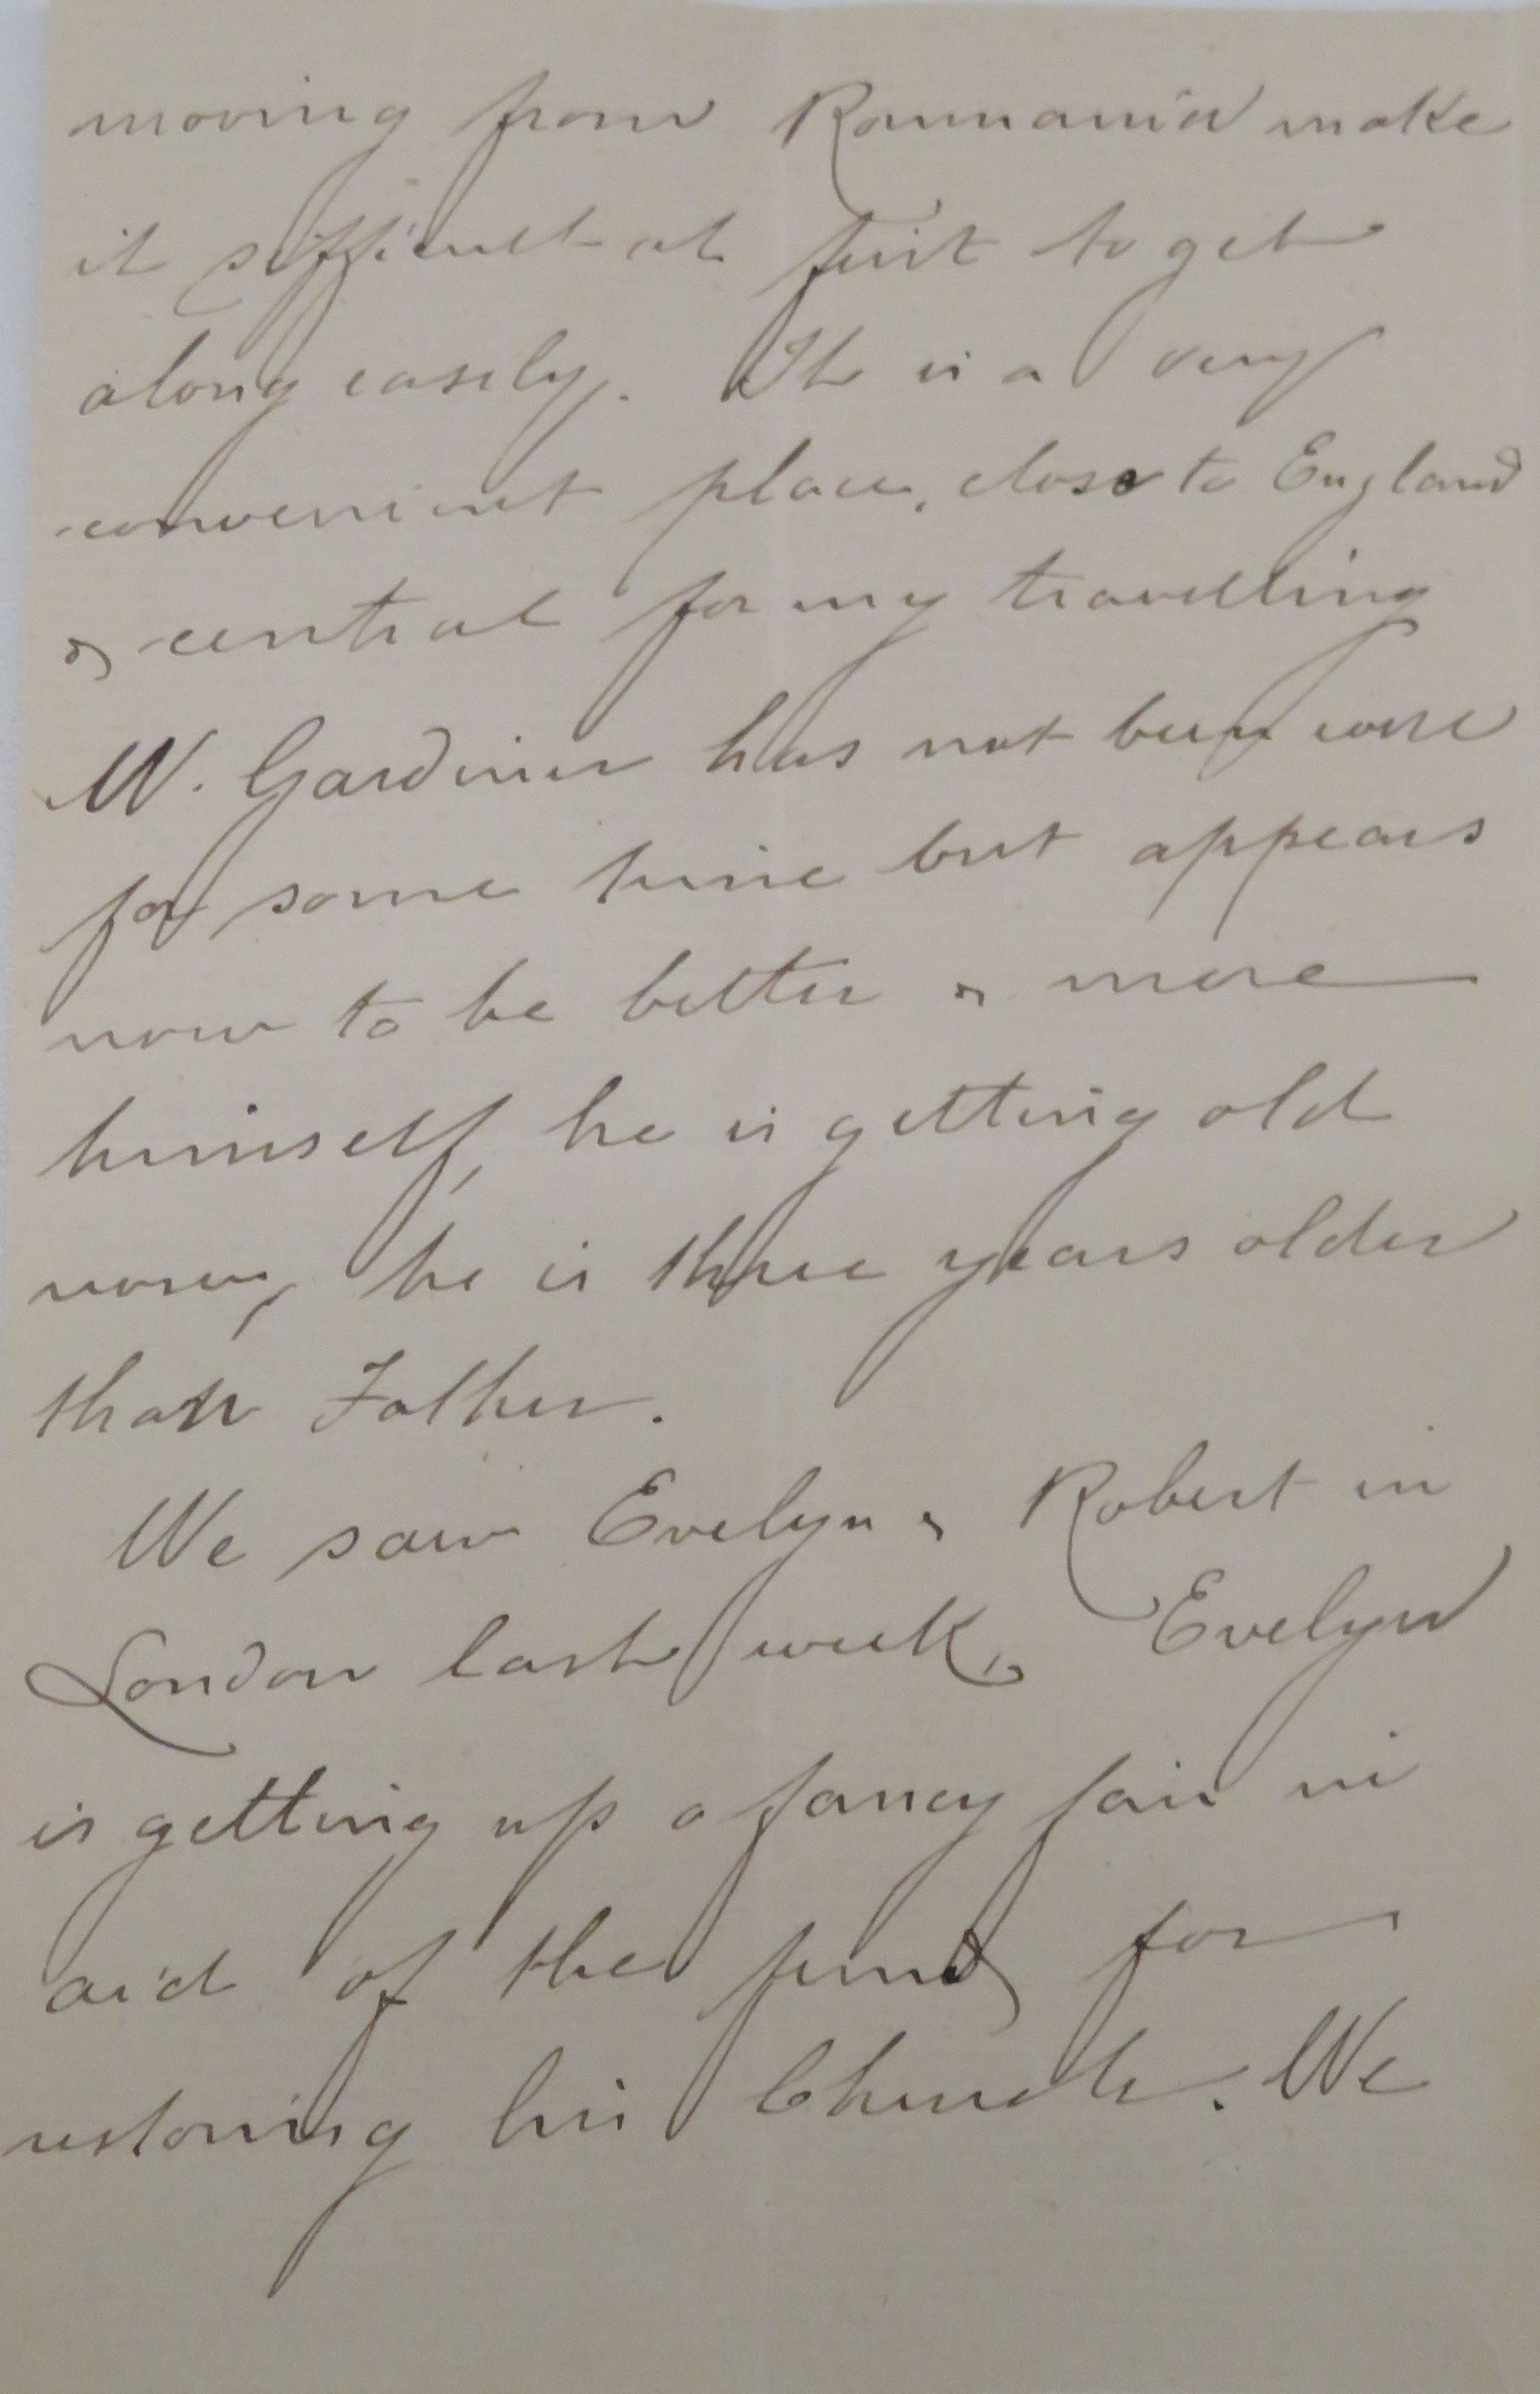 moving from Roumania make
it difficult at first to get
along easily. It is a very
convenient place, close to England
& central for my travelling
W. Gardiner has not been well
for some time but appears
now to be better & more
himself, he is getting old
now, he is three years older
than Father.
We saw Evelyn & Robert in
London last week, Evelyn
is getting up a fancy fair in
aid of the fund for
restoring his Church. We